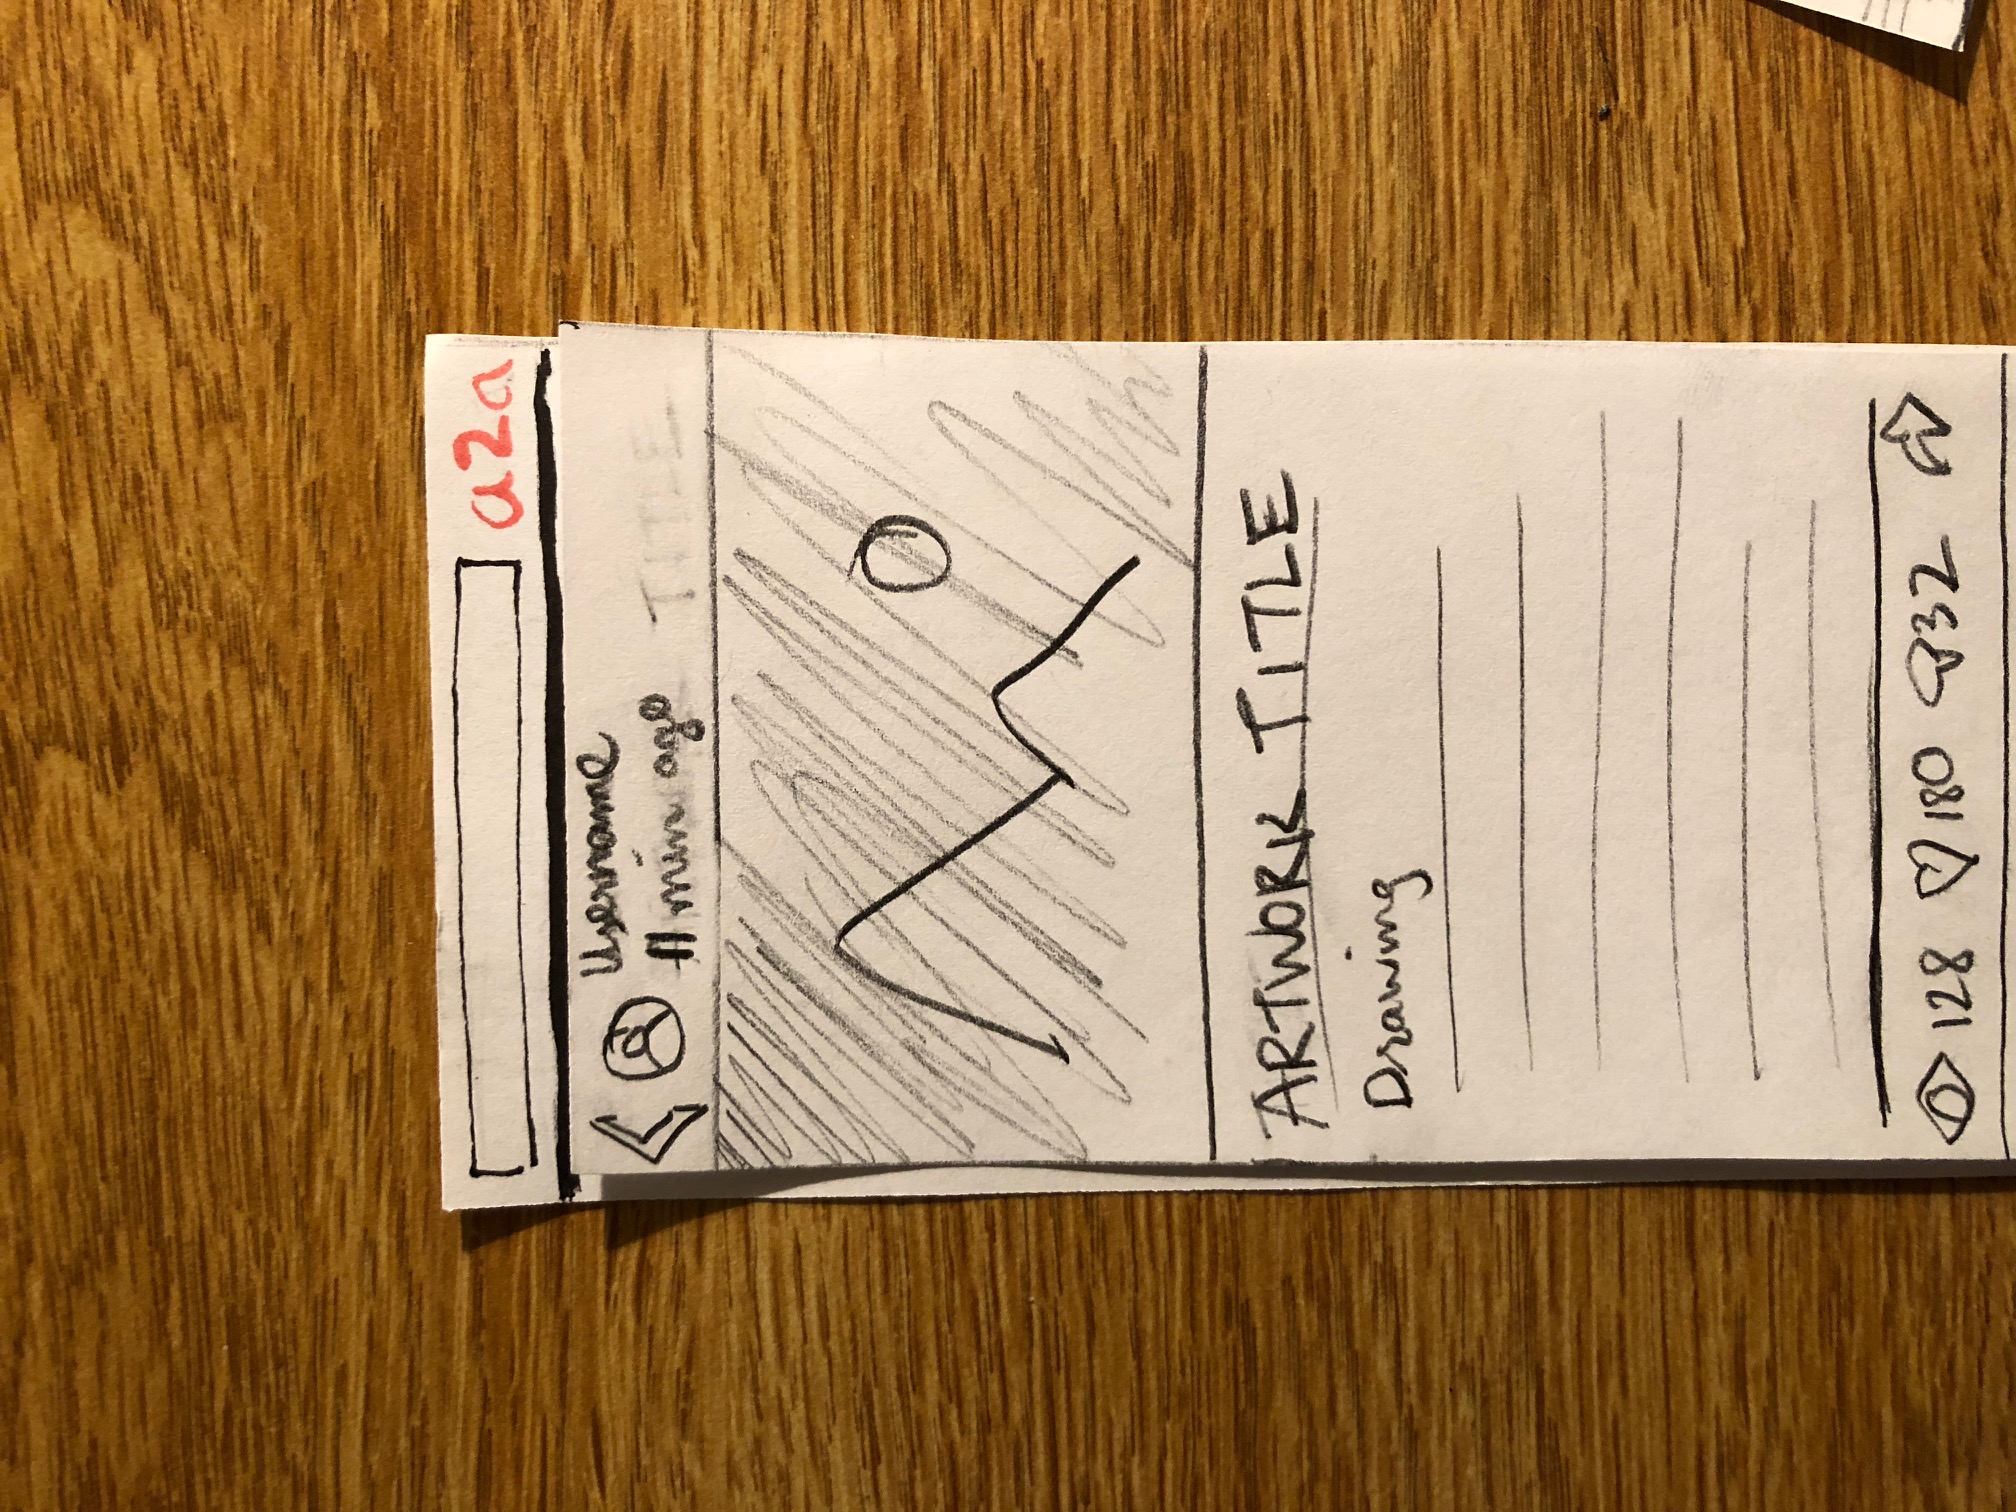 a2a
Username
11 min ago
TITLE
ARTWORK TITLE
Drawing
128 180 32